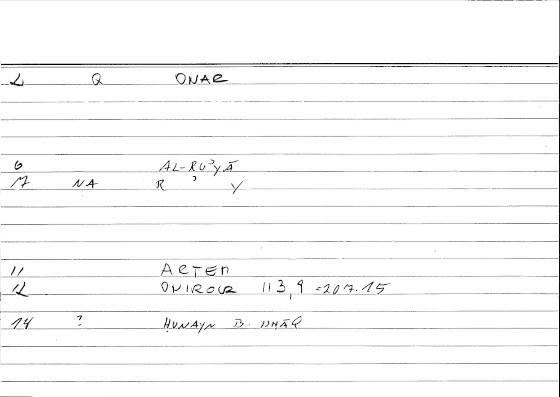 L Q ONAR
6 AL-RUʾYĀ
17 NA R ʾ Y
11 ARTEM
12 ONIROCR 113,9 = 207.15
14 ? ḤUNAYN B. ISḤĀQ